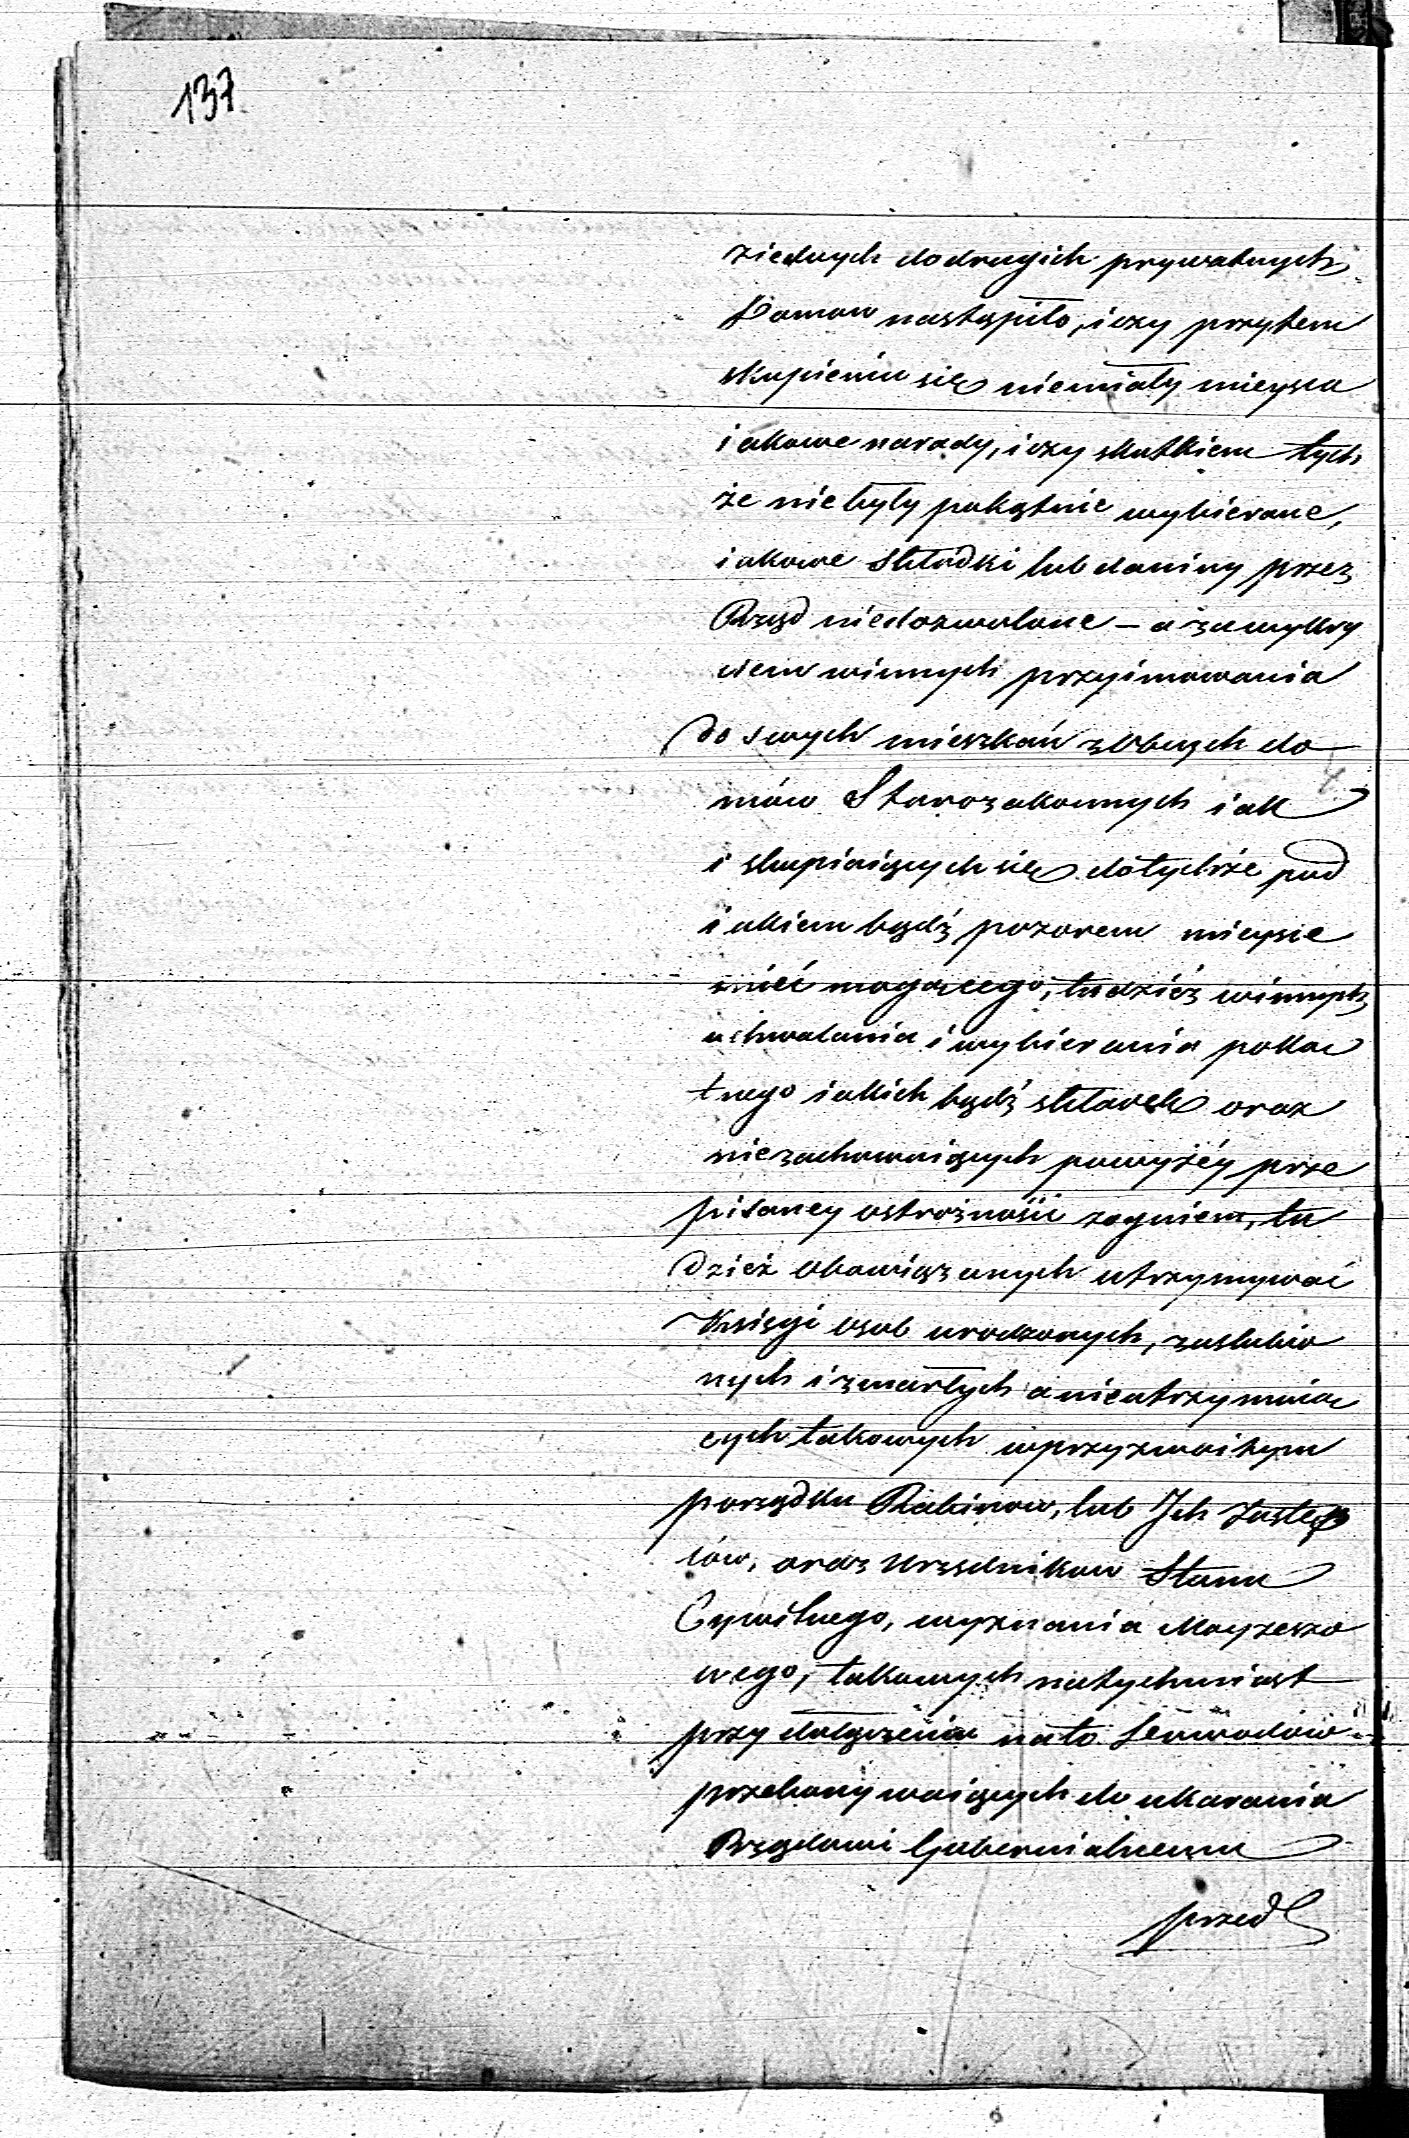 137
ziednych do drugich prywatnych
Domow nastąpiło, i czy przytem
skupieniu się niemiały mieysca
iakowe narady, i czy skutkiem tych
że niebyły pokątnie wybierane,
iakowe składki lub daniny przez
Rząd niedozwolone – a za wykry
ciem winnych przyimowania
do swych mieszkań z Obcych do
mów Starozakonnych iak
i skupiaiących się do tychże pod
iakiem bądź pozorem mieysce
mieć mogącego, tudzież winnych
uchwalania i wybierania poką
tnego iakich bądź składek oraz
niezachowuiących powyżéy prze
pisaney ostrożności z ogniem, tu
dzież obowiązanych utrzymywać
Księgi osob urodzonych, zaslubio
nych i zmarłych a nieutrzymuią
cych takowych w przyzwoitym
porządku Rabinow, lub Ich Zastęp
ców, oraz Urzędnikow Stanu
Cywilnego, wyznania Moyżeszo
wego, takowych natychmiast
przy dołączeniu na to dowodów
przekonywaiących do ukarania
Rządowi Gubernialnemu
przed